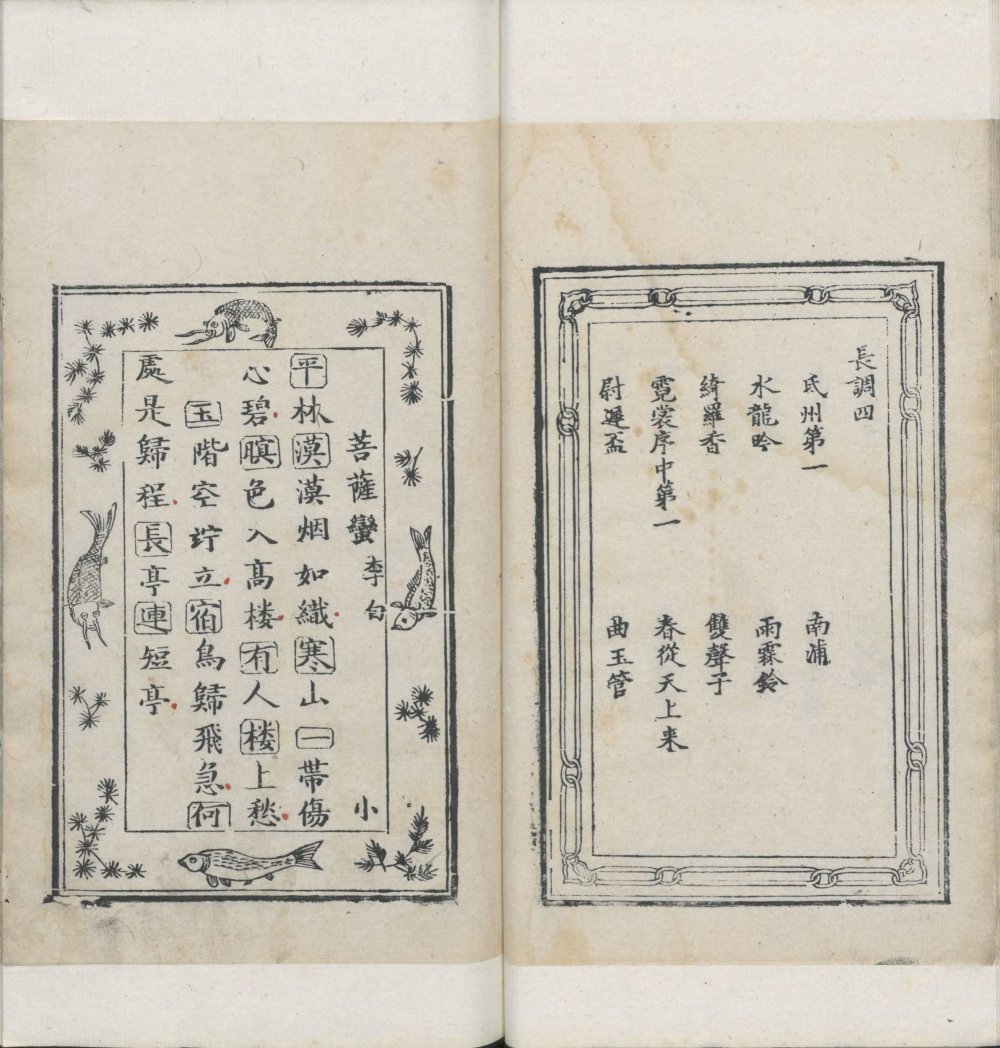 長調四
氐州第一　南浦
水龍吟　雨霖鈴
綺羅香　雙聲子
霓裳序中第一　春從天上来
尉遲盃　曲玉管
菩薩蠻　李白　小
平林漠漠烟如織寒山一帶傷
心碧暝色入高楼有人楼上愁
玉階空竚立宿鳥歸飛急何
處是歸程長亭連短亭